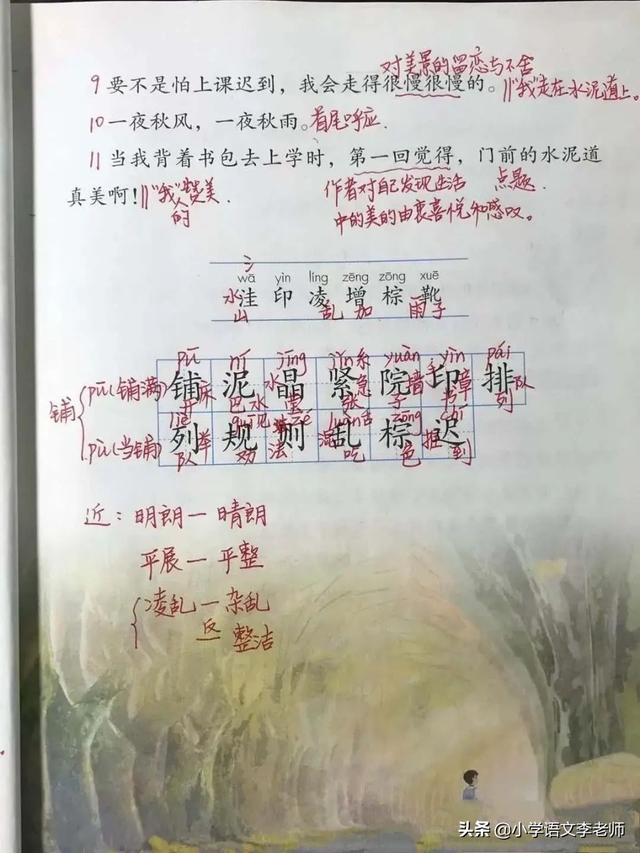 对美景的留恋与不舍
9 要不是怕上课迟到，我会走得很慢很慢的。||“我”走在水泥道上。
10 一夜秋风，一夜秋雨。首尾呼应.
11 当我背着书包去上学时，第一回觉得，门前的水泥道
真美啊！||“我”的赞美.
作者对自己发现生活 点题.
中的美的由衷喜悦和感叹。
wā yìn líng zēng zōng xuē
水洼 印 凌 增 棕 靴
山 乱 加 雨子
pū ní jīng jǐn yuàn yìn pái
铺 泥 晶 紧 院 印 排
铺 pū(铺满)
列 规 则 乱 棕 迟
pù(当铺)
队 法 吃 色 到
近：明朗一晴朗
平展一平整
凌乱一杂乱
反 整洁
头条 @小学语文李老师